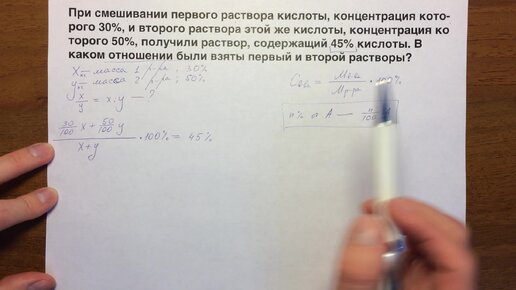 При смешивании первого раствора кислоты, концентрация кото-
рого 30%, и второго раствора этой же кислоты, концентрация ко
торого 50%, получили раствор, содержащий 45% кислоты. В
каком отношении были взяты первый и второй растворы?
x – масса 1 р-ра, 30%
y – масса 2 р-ра, 50%
x/y = x:y – ?
C = m / m р-ра · 100%
n% от A — n/100
(30/100 x + 50/100 y) / (x+y) · 100% = 45%